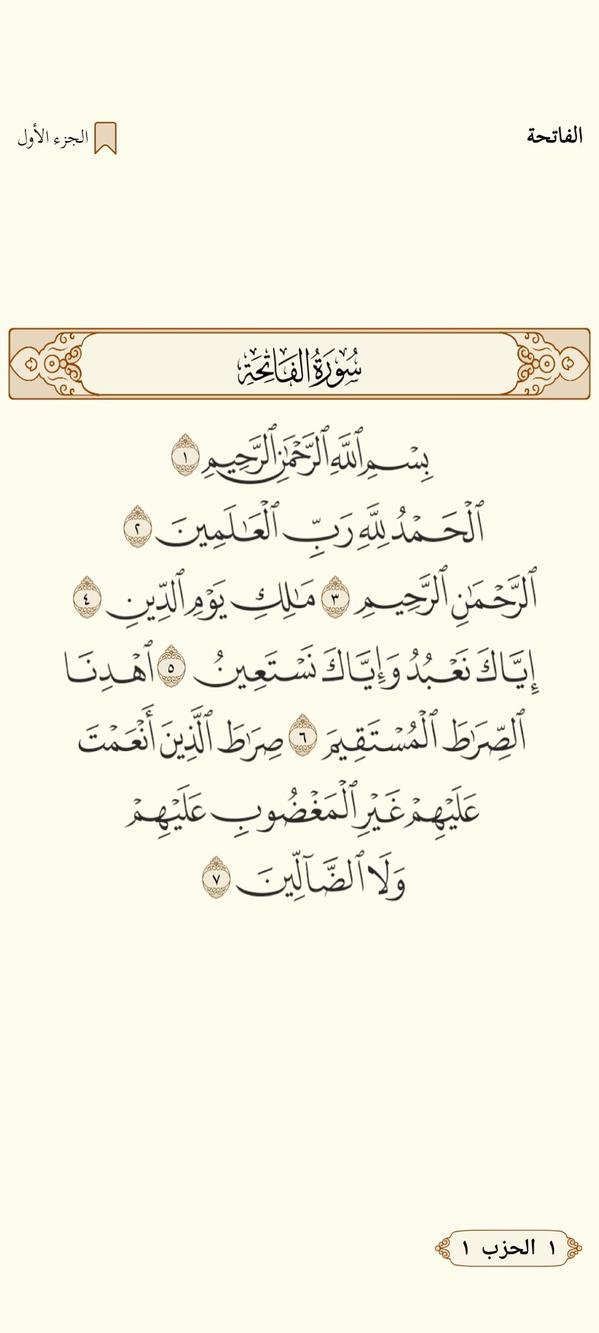 الفاتحة
الجزء الأول
سُورَةُ الفَاتِحَةِ
بِسۡمِ ٱللَّهِ ٱلرَّحۡمَٰنِ ٱلرَّحِيمِ ١
ٱلۡحَمۡدُ لِلَّهِ رَبِّ ٱلۡعَٰلَمِينَ ٢
ٱلرَّحۡمَٰنِ ٱلرَّحِيمِ ٣ مَٰلِكِ يَوۡمِ ٱلدِّينِ ٤
إِيَّاكَ نَعۡبُدُ وَإِيَّاكَ نَسۡتَعِينُ ٥ ٱهۡدِنَا
ٱلصِّرَٰطَ ٱلۡمُسۡتَقِيمَ ٦ صِرَٰطَ ٱلَّذِينَ أَنۡعَمۡتَ
عَلَيۡهِمۡ غَيۡرِ ٱلۡمَغۡضُوبِ عَلَيۡهِمۡ
وَلَا ٱلضَّآلِّينَ ٧
١ الحزب ١